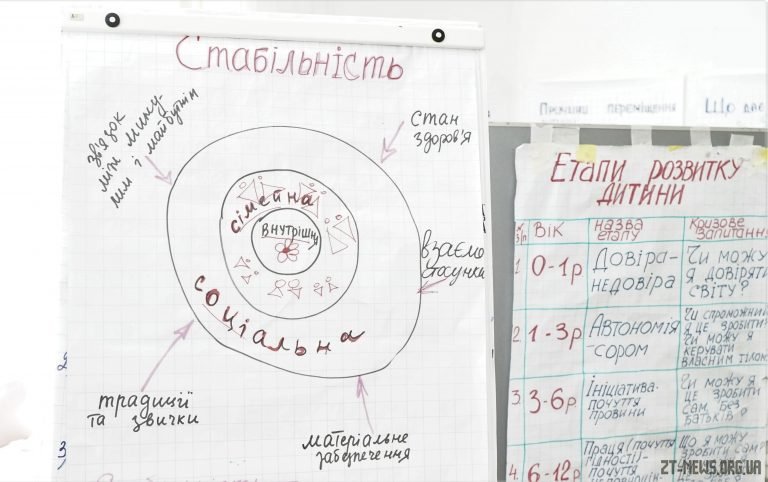 Стабільність
звязок
між мину-
лим і майбутнім
стан
здоров'я
сімейна
внутрішня
взаємо
стосунки
соціальна
традиції
та звички
матеріальне
забезпечення
2
3
Причини переміщення
Що дає
Етапи розвитку
дитини
№ з/п
Вік
назва
етапу
кризове
запитання
1.
0-1р
Довіра-
недовіра
Чи можу
я довіряти
світу?
2.
1-3р
Автономія
-сором
Чи спроможний
я це зробити?
Чи можу я
керувати
власним тілом
3.
3-6р
Ініціатива-
почуття
провини
Чи можу я
це зробити
сам без
батьків?
4.
6-12р
Праця (почуття
гідності)-
почуття
Що я можу
зробити сам
ZT-NEWS.ORG.UA